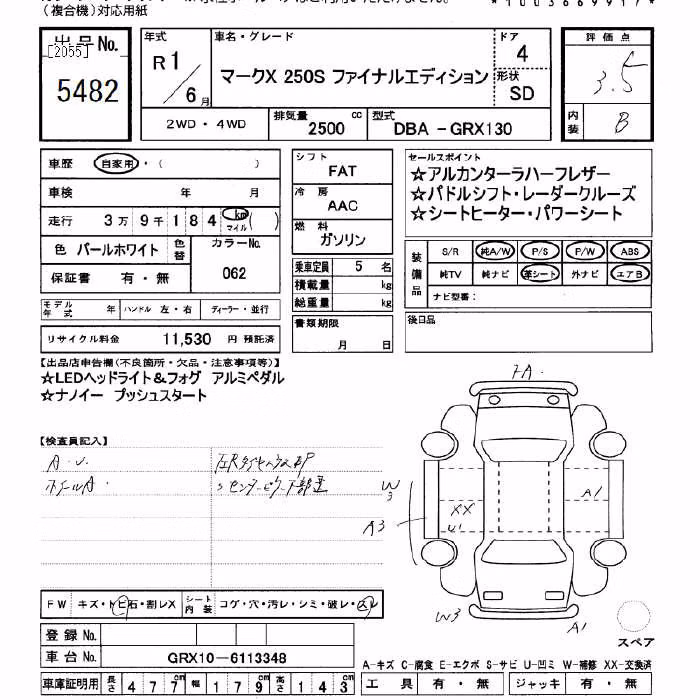 (複合機)対応用紙
*1003669917*
出品No.
[2055]
5482
年式 R1/6月
車名・グレード
マークX 250S ファイナルエディション
ドア 4
形状 SD
評価点
3.5
内装 B
2WD・4WD
排気量 2500 cc
型式 DBA-GRX130
車歴 自家用・( )
車検 年 月
走行 3万9千184 km マイル ( )
色 パールホワイト 色替
カラーNo. 062
保証書 有・無
モデル年式 年 ハンドル 左・右 ディーラー・並行
リサイクル料金 11,530 円 預託済
シフト FAT
冷房 AAC
燃料 ガソリン
乗車定員 5 名
積載量 kg
総重量 kg
書類期限
月 日
セールスポイント
☆アルカンターラハーフレザー
☆パドルシフト・レーダークルーズ
☆シートヒーター・パワーシート
装備品
S/R 純A/W P/S P/W ABS
純TV 純ナビ 革シート 外ナビ エアB
ナビ型番:
後日品
【出品店申告欄(不良箇所・欠品・注意事項等)】
☆LEDヘッドライト&フォグ アルミペダル
☆ナノイー プッシュスタート
【検査員記入】
A.U.
ホイールA.
7A.
W3
A3
XX
U1
A1
W3
A1
スペア
FW キズ・トビ石・割レX
シート内装 コゲ・穴・汚レ・シミ・破レ・スレ
登録No.
車台No. GRX10-6113348
車庫証明用 長さ 477cm 幅 179cm 高さ 143cm
A-キズ C-腐食 E-エクボ S-サビ U-凹ミ W-補修 XX-交換済
工具 有・無 ジャッキ 有・無